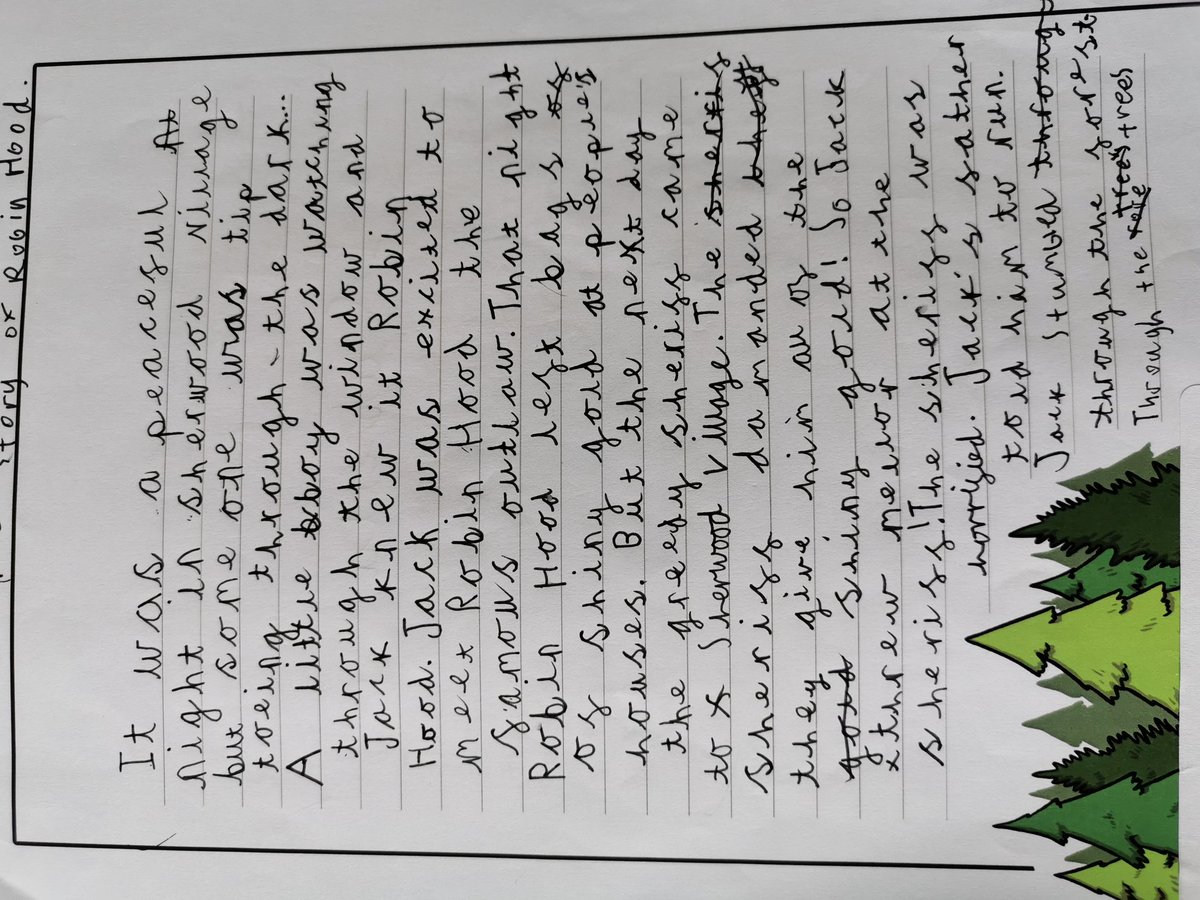 story of Robin Hood.
It was a peaceful At
night in sherwood village
but some one was tip
toeing through - the dark...
A little bboy was watching
through the window and
Jack knew it Robin
Hood. Jack was excited to
meet Robin Hood the
famous outlaw. That night
Robin Hood left bags of
of shiny gold at people's
houses. But the next day
the greedy sheriff came
to Sherwood Village. The sherif
sheriff damanded the
they give him all of the
gold shiny gold! So Jack
threw melior at the
sheriff! The sheriff was
horrified. Jack's father
told him to run.
Jack stumbled throug
through the forest
Through the trees trees